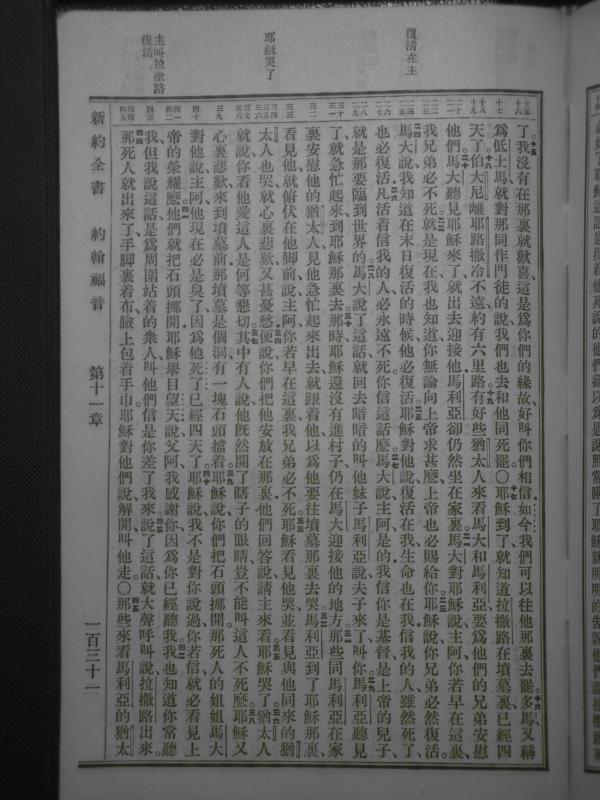 復活在主
耶穌哭了
主叫拉撒路
復活
了我沒有在那裏就歡喜這是爲你們的緣故好叫你們相信如今我們可以往他那裏去罷多馬又稱
爲低土馬就對那同作門徒的說我們也去和他同死罷〇耶穌到了就知道拉撒路在墳墓裏已經四
天了伯大尼離耶路撒冷不遠約有六里路有好些猶太人來看馬大和馬利亞要爲他們的兄弟安慰
他們馬大聽見耶穌來了就出去迎接他馬利亞卻仍然坐在家裏馬大對耶穌說主阿你若早在這裏
我兄弟必不死就是現在我也知道你無論向上帝求甚麼上帝也必賜給你耶穌說你兄弟必然復活
馬大說我知道在末日復活的時候他必復活耶穌對他說復活在我生命也在我信我的人雖然死了
也必復活凡活着信我的人必永遠不死你信這話麼馬大說主阿是的我信你是基督是上帝的兒子
就是那要臨到世界的馬大說了這話就回去暗暗的叫他妹子馬利亞說夫子來了叫你馬利亞聽見
了就急忙起來到耶穌那裏去那時耶穌還沒有進村子仍在馬大迎接他的地方那些同馬利亞在家
裏安慰他的猶太人見他急忙起來出去就跟着他以爲他要往墳墓那裏去哭馬利亞到了耶穌那裏
看見他就俯伏在他脚前說主阿你若早在這裏我兄弟必不死耶穌看見他哭並看見與他同來的猶
太人也哭就心裏悲歎又甚憂愁便說你們把他安放在那裏他們回答說請主來看耶穌哭了猶太人
就說你看他愛這人是何等懇切其中有人說他旣然開了瞎子的眼睛豈不能叫這人不死麼耶穌又
心裏悲歎來到墳墓前那墳墓是個洞有一塊石頭擋着耶穌說你們把石頭挪開那死人的姐姐馬大
對他說主阿他現在必是臭了因爲他死了已經四天了耶穌說我不是對你說過你若信就必看見上
帝的榮耀麼他們就把石頭挪開耶穌舉目望天說父阿我感謝你因爲你已經聽我我也知道你常聽
我但我說這話是爲周圍站着的衆人叫他們信是你差了我來說了這話就大聲呼叫說拉撒路出來
那死人就出來了手脚裹着布臉上包着手巾耶穌對他們說解開叫他走〇那些來看馬利亞的猶太
新約全書 約翰福音 第十一章 一百三十一